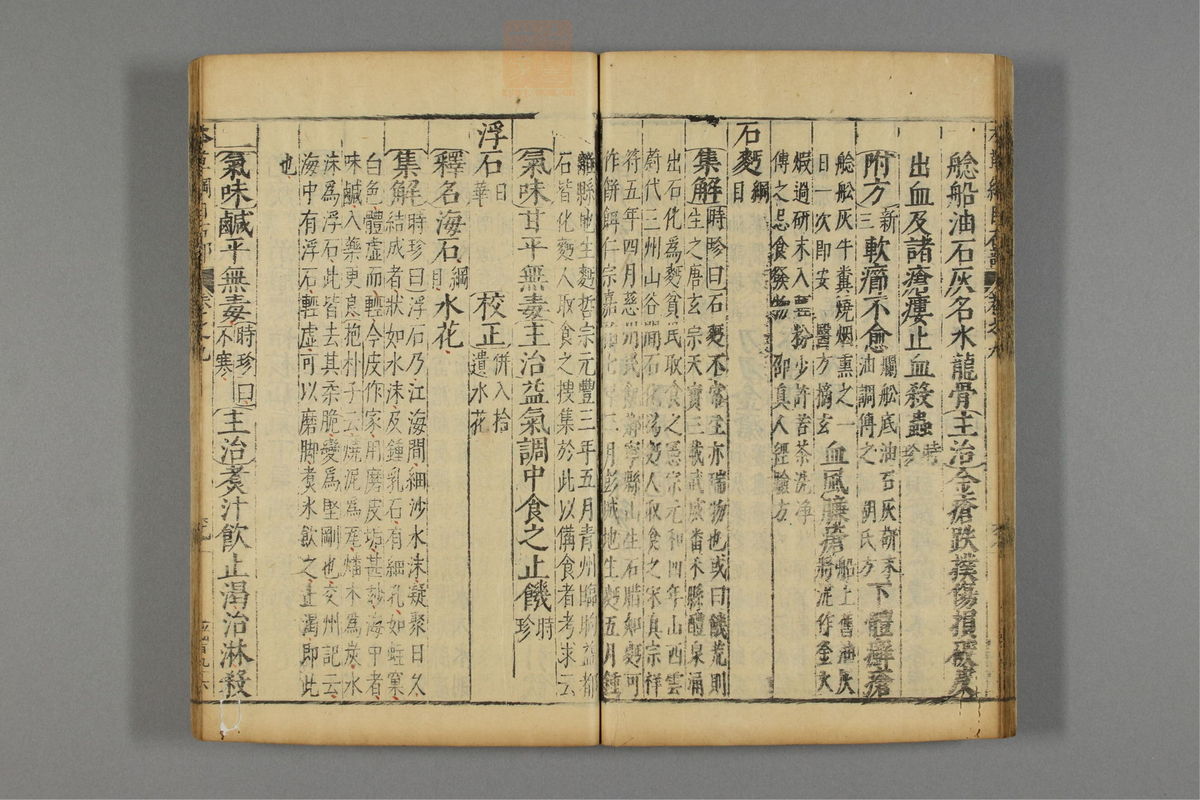 艌船油石灰名水龍骨主治金瘡跌撲傷損破皮
出血及諸瘡瘻止血殺蟲時珍
附方新三軟癤不愈爛船底油石灰研末油調傅之胡氏方下體癬瘡
艌船灰牛糞燒烟熏之一日一次即安醫方摘玄血風臁瘡船上舊油灰將泥作釜火
煅過研末入輕粉少許苦茶洗淨傅之忌食發物仰真人經驗方
石麪綱目
集解時珍曰石麪不常生亦瑞物也或曰饑荒則
生之唐玄宗天寶三載武威番禾縣醴泉涌
出石化爲麪貧民取食之憲宗元和四年山西雲
蔚代三州山谷間石化爲麪人取食之宋真宗祥
符五年四月慈州民饑鄉寧縣山生石脂如麪可
作餅餌仁宗嘉祐七年三月彭城地生麪五月鍾
離縣地生麪哲宗元豐三年五月青州臨朐益都
石皆化麪人取食之搜集於此以備食者考求云
氣味甘平無毒主治益氣調中食之止饑時珍
浮石日華
釋名海石綱目水花校正併入拾遺水花
集解時珍曰浮石乃江海間細沙水沫凝聚日久
結成者狀如水沫及鍾乳石有細孔如蛀窠
白色體虛而輕今皮作家用磨皮垢甚妙海中者
味鹹入藥更良抱朴子云燒泥爲瓦燔木爲炭水
沫爲浮石此皆去其柔脆變爲堅剛也交州記云
海中有浮石輕虛可以磨脚煮水飲之止渴即此
也
氣味鹹平無毒時珍曰不寒主治煮汁飲止渴治淋殺